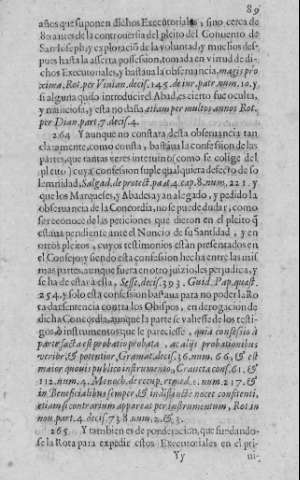 89
años que suponen dichos Executoriales, sino cerca de
80 antes de la controversia del pleito del Conuento de
San Ioseph, y exploracion de la voluntad, y muchos des-
pues hasta la asserta possession, tomada en virtud de di-
chos Executoriales, y bastaua la obseruancia, magis pro
xima, Rot. per Vinian. decis. 145. de iur. patr. num. 10. y
si alguna quiso introducir el Abad, es cierto fue oculta,
y maliciosa, y esta no daña etiam per multos annos Rot.
per Dian. part. 7. decis. 4.
264 Y aunque no constara desta obseruancia tan
claramente, como consta, bastaua la confession de las
partes, que tantas vezes interuino (como se colige del
pleito) cuya confession suple qualquiera defecto de so
lemnidad, Salgad. de protect. p. 4. cap. 8. num. 221. y
que los Marqueses, y Abadesayan alegado, y pedido la
obseruancia de la Concordia, no se puede dudar, como
se reconoce de las peticiones que dieron en el pleito q̃
estaua pendiente ante el Nuncio de su Santidad, y en
otros pleitos, cuyos testimonios estàn presentados en
el Consejo, y siendo esta confession hecha entre las mis
mas partes, aunque fuera en otro juizio, les perjudica, y
se ha de estar a esta, Sesse, decis. 393. Guid. Pap. quæst.
254. y solo esta confession bastaua para no poder la Ro
ta dar sentencia contra los Obispos, en derogacion de
dicha Concordia, aunque la parte se valiesse de los testi-
gos, ò instrumentos que le pareciesse, quia confessio à
parte facta est probatio probata, ac alijs probationibus
verior, & potentior, Gramat. decis. 36. num. 66. & est
maior quouis publico instrumento, Craueta conf. 61. &
112. num. 4. Menoch. de recup. remed. 1. num. 217. &
in Beneficialibus semper, & indistinctè nocet confitenti,
etiam si contrarium appareat per instrumentum, Rot. in
nou. part. 4. decis. 738. num. 2. & 3.
265 Y tambien es de ponderacion, que fundando-
se la Rota para expedir estos Executoriales en el pri-
Yy mi-